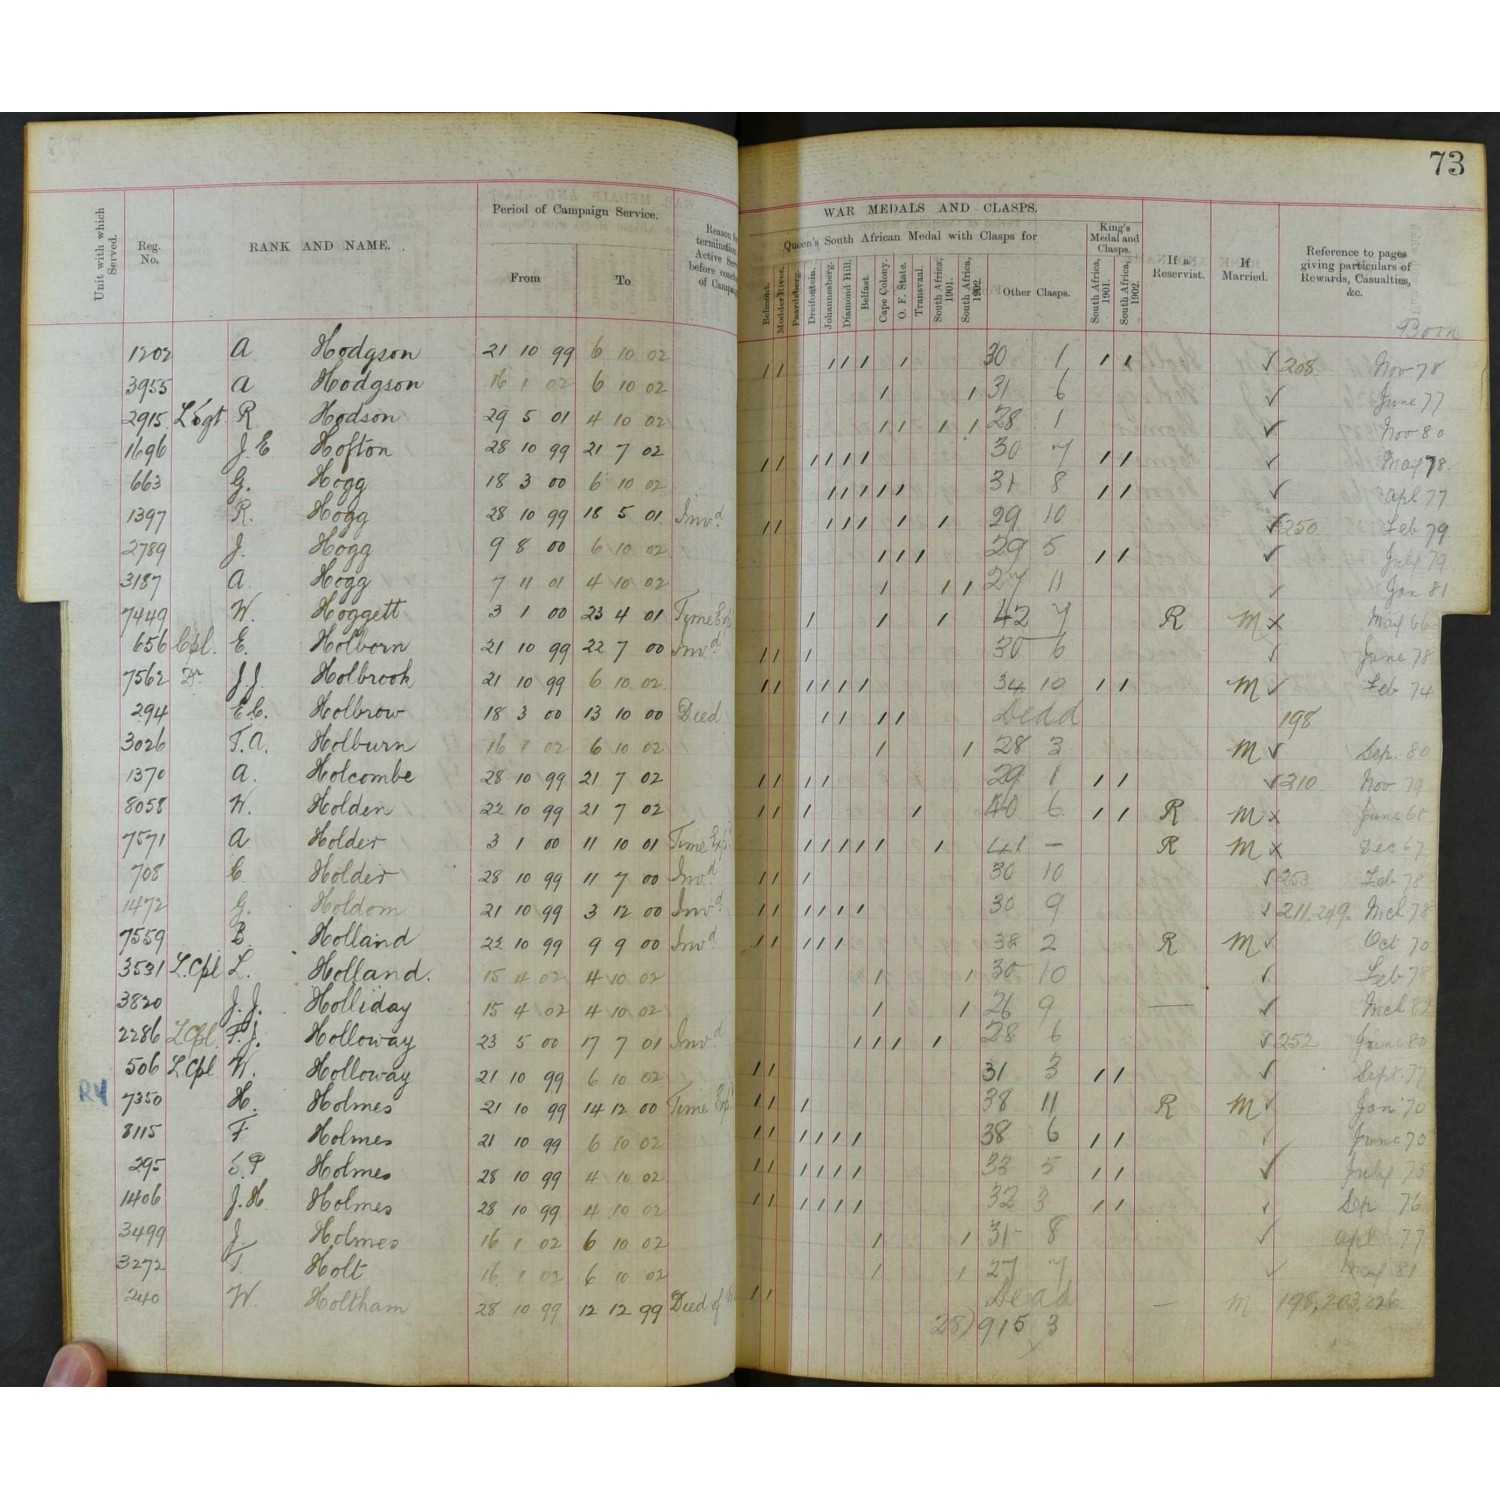 73
WAR MEDALS AND CLASPS.
Unit with which Served.
Reg. No.
RANK AND NAME.
Period of Campaign Service.
From
To
Queen's South African Medal with Clasps for
Belmont.
Modder River.
Paardeberg.
Dreifontein.
Johannesberg.
Diamond Hill.
Belfast.
Cape Colony.
O. F. State.
Transvaal.
South Africa, 1901.
South Africa, 1902.
Other Clasps.
King's Medal and Clasps.
South Africa, 1901.
South Africa, 1902.
If a Reservist.
If Married.
Reference to pages giving particulars of Rewards, Casualties, &c.
Born
1202 A Hodgson 21 10 99 6 10 02 30 1 ✓ 208 Nov 78
3955 A Hodgson 16 1 02 6 10 02 31 6 ✓ June 77
2915 L Sgt R Hodson 29 5 01 4 10 02 28 1 ✓ Nov 80
1696 J.E Hofton 28 10 99 21 7 02 30 7 ✓ May 78.
663 G. Hogg 18 3 00 6 10 02 31 8 ✓ Apl 77
1397 R. Hogg 28 10 99 18 5 01 Invd 29 10 ✓ 250 Feb 79
2789 J. Hogg 9 8 00 6 10 02 29 5 ✓ July 79
3187 A. Hogg 7 11 01 4 10 02 27 11 ✓ Jan 81
7449 W. Hoggett 3 1 00 23 4 01 Time Exp 42 7 R M x May 66
656 Cpl. E. Holborn 21 10 99 22 7 00 Invd 30 6 ✓ June 78
7562 Dr J.J. Holbrook 21 10 99 6 10 02 34 10 M ✓ Feb 74
294 E.C. Holbrow 18 3 00 13 10 00 Died Dead 198
3026 T.A. Holburn 16 1 02 6 10 02 28 3 M ✓ Sep. 80
1370 A. Holcombe 28 10 99 21 7 02 29 1 ✓ 210 Nov 79
8058 W. Holden 22 10 99 21 7 02 40 6 R M x June 68
7571 A Holder 3 1 00 11 10 01 Time Exp 41 — R M x Dec 67
708 C Holder 28 10 99 11 7 00 Invd 30 10 ✓ 253 Feb 78
1472 G. Holdom 21 10 99 3 12 00 Invd 30 9 ✓ 211.249. Mch 78
7559 B. Holland 22 10 99 9 9 00 Invd 38 2 R M ✓ Oct 70
3531 L.Cpl L. Holland. 15 4 02 4 10 02 30 10 ✓ Feb 78
3820 J.J. Holliday 15 4 02 4 10 02 26 9 — ✓ Mch 82
2286 L Cpl. F.J. Holloway 23 5 00 17 7 01 Invd 28 6 ✓ 252 June 80
506 L.Cpl W. Holloway 21 10 99 6 10 02 31 3 ✓ Sept. 77
7350 H. Holmes 21 10 99 14 12 00 Time Exp 38 11 R M ✓ Jan 70
8115 F Holmes 21 10 99 6 10 02 38 6 June 70
295 S.P Holmes 28 10 99 4 10 02 33 5 ✓ July 75
1406 J.H. Holmes 28 10 99 4 10 02 32 3 ✓ Sep 76
3499 J. Holmes 16 1 02 6 10 02 31 8 ✓ Apl 77
3272 T. Holt 16 1 02 6 10 02 27 7 ✓ May 81
240 W. Holtham 28 10 99 12 12 99 Died of Dead — M 198, 203, 226
28) 915 3